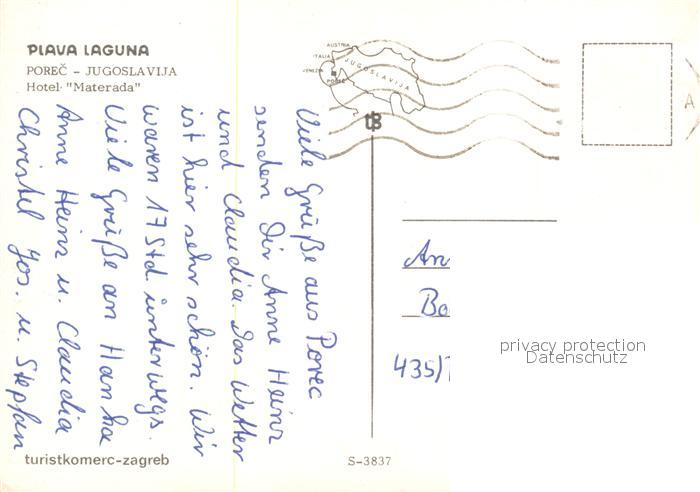 PLAVA LAGUNA
POREČ - JUGOSLAVIJA
Hotel "Materada"
AUSTRIA
ITALIA
JUGOSLAVIJA
POREČ
tB
Viele Grüße aus Porec
senden Dir Anne Heinz
und Claudia. Das Wetter
ist hier sehr schön. Wir
waren 17 Std. unterwegs.
Viele Grüße an Hanka
Anne Heinz u. Claudia
Christel Jos. u. Stephan
An
Bo
435/
A
privacy protection
Datenschutz
turistkomerc-zagreb
S-3837